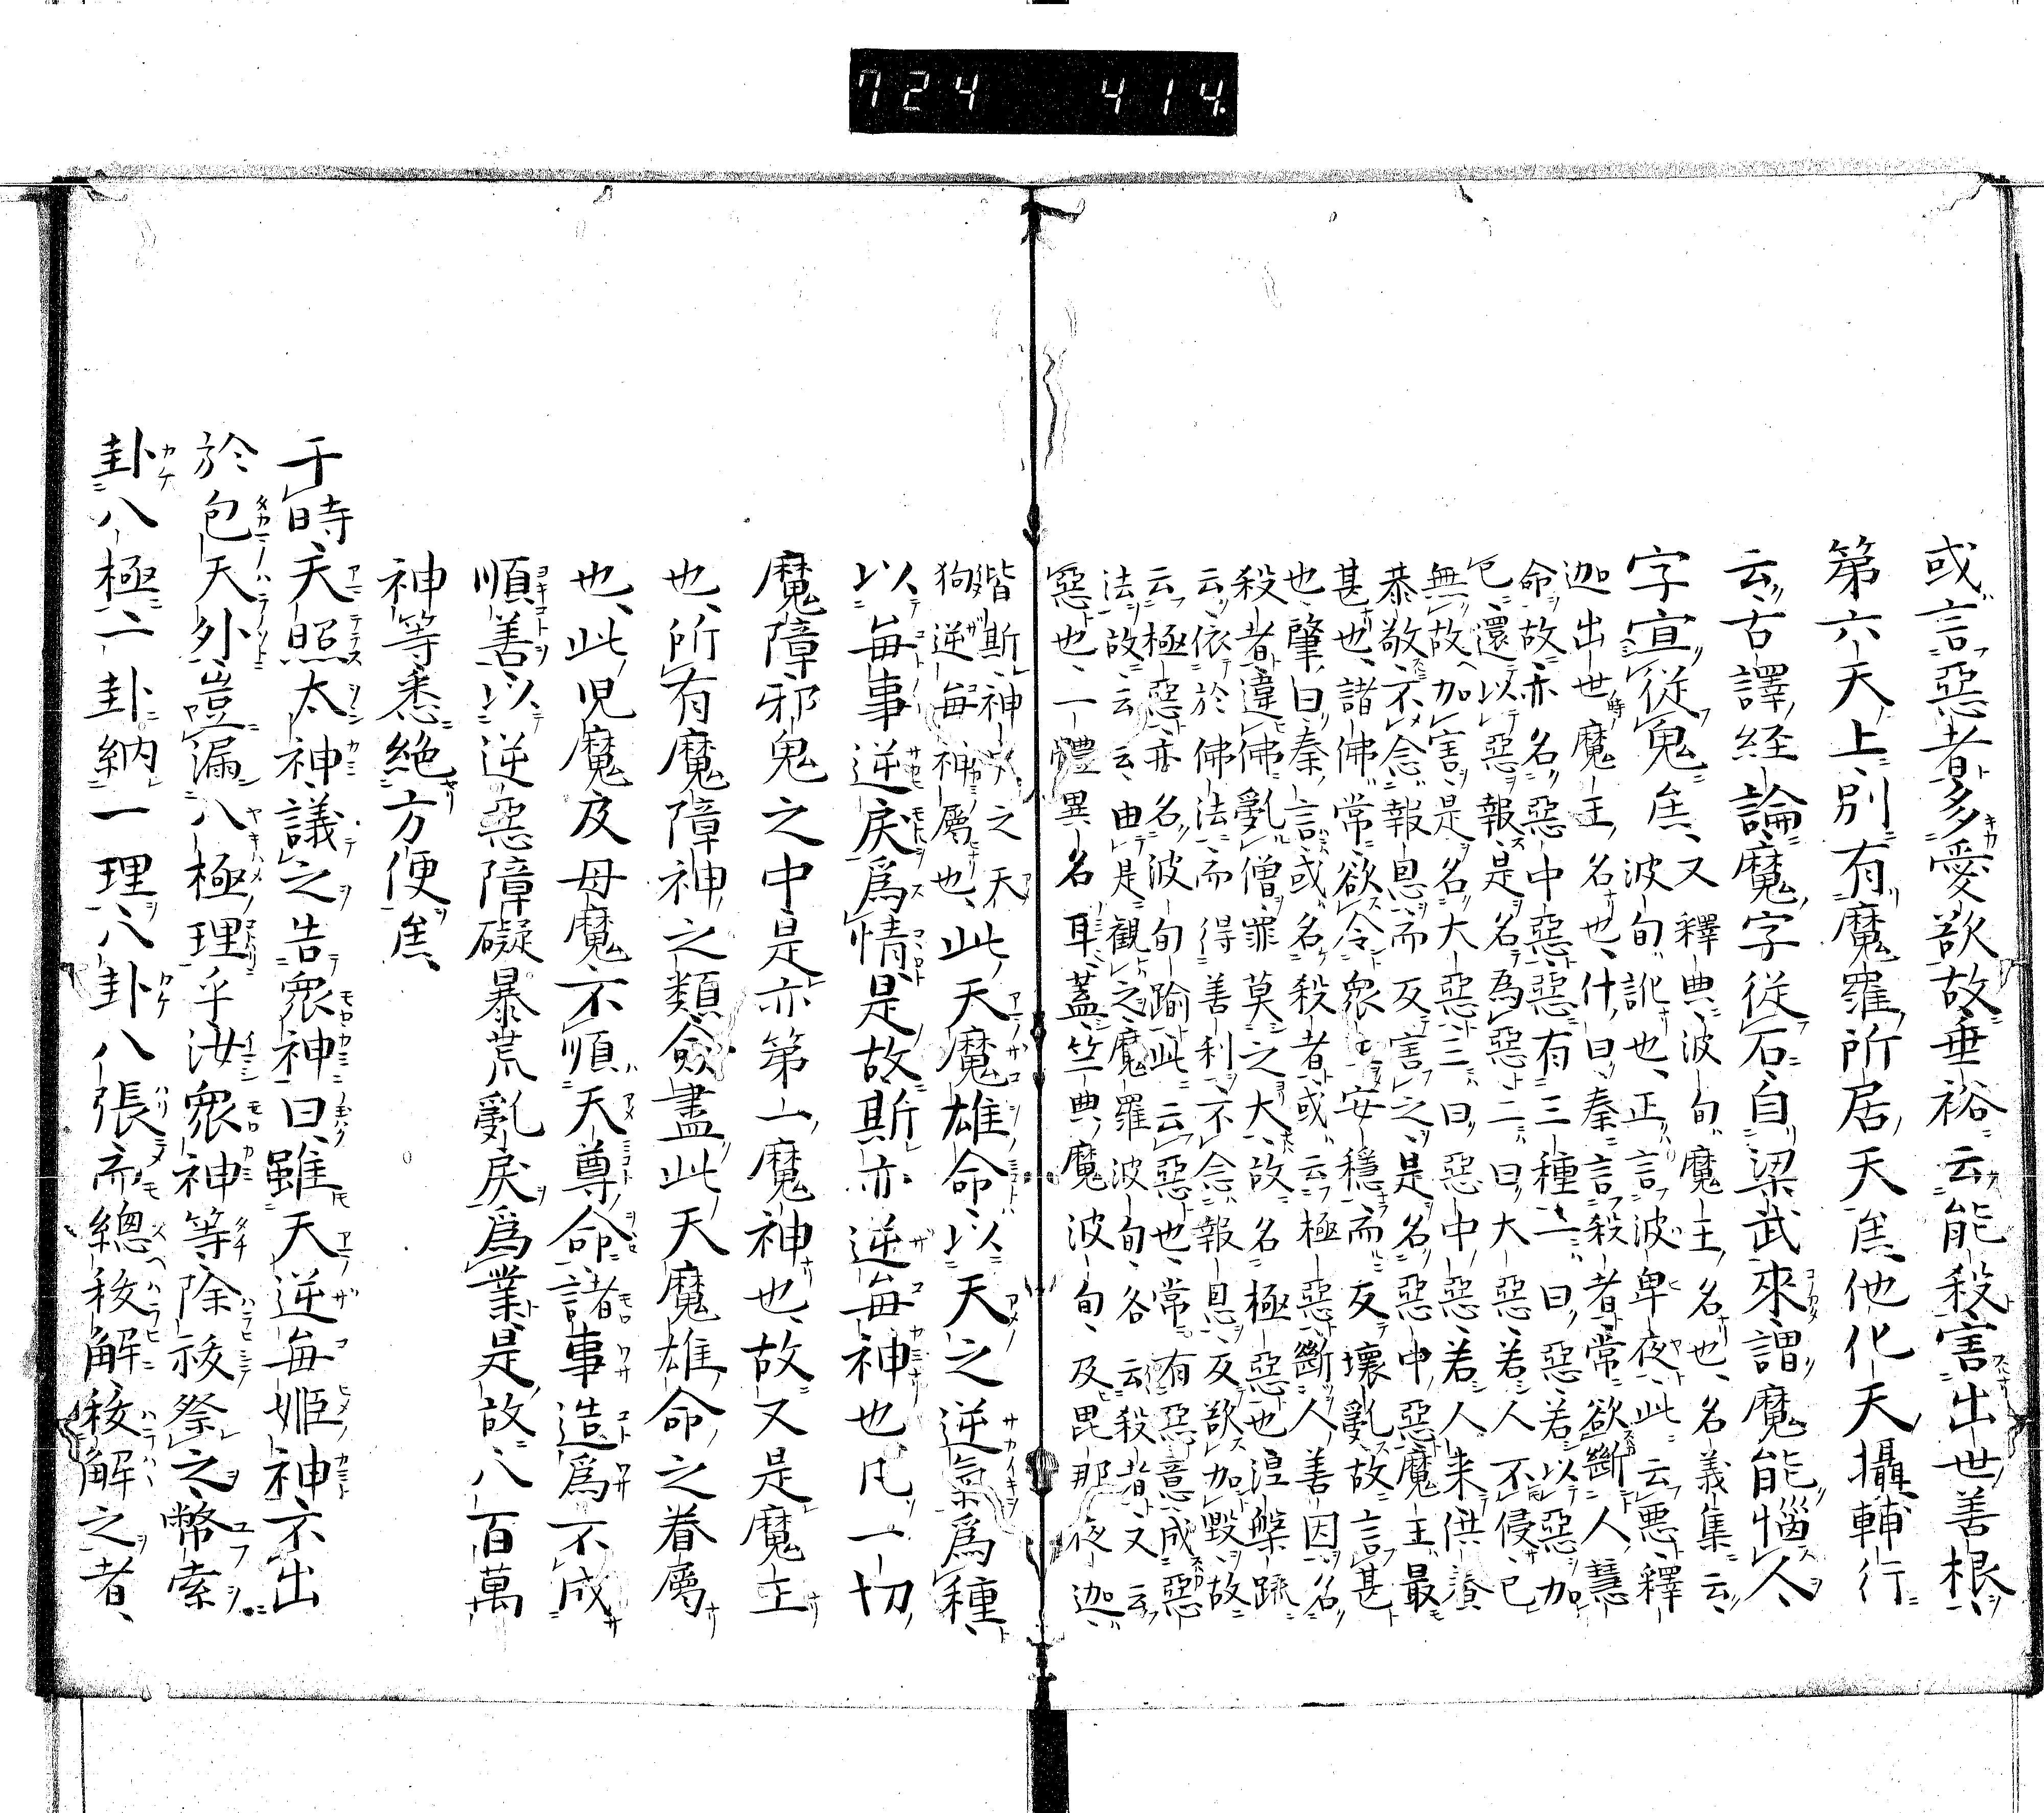 724 414
或言惡者多愛欲故垂裕云能殺害出世善根
第六天上別有魔羅所居天㞐他化天攝輔行
云古譯経論魔字従石自梁武來謂魔能惱人
字宜従鬼㞐又釋典波旬魔主名也名義集云
波旬訛也正言波卑夜此云悪釋
迦出世魔主名也什曰秦言殺者常欲斷人慧
命故亦名惡中惡惡有三種一曰惡若以惡加
已還以惡報是名為惡二曰大惡若人不侵已
無故加害是名大惡三曰惡中惡若人来供養
恭敬不念報恩而反害之是名惡中惡魔主最
甚也諸佛常欲令衆生安穩而反壞亂故言甚
也肇曰秦言或名殺者或云極惡斷人善因名
殺者違佛亂僧罪莫之大故名極惡也涅槃疏
云依於佛法而得善利不念報恩反欲加毀故
云極惡亦名波旬踰此云惡也常有惡意成惡
法故云云由是観之魔羅波旬各云殺者又云
惡也一體異名耳蓋竺典魔波旬及毘那夜迦
堦斯神之天
狗逆毎神屬也此天魔雄命以天之逆氣爲種
以毎事逆戻爲情是故斯亦逆毎神也凡一切
魔障邪鬼之中是亦第一魔神也故又是魔主
也所有魔障神之類僉盡此天魔雄命之眷屬
也此児魔及母魔不順天尊命諸事造爲不成
順善以逆惡障礙暴荒亂戻爲業是故八百萬
神等悉絶方便㞐
于時天照太神議之告衆神曰雖天逆毎姫神不出
於包天外豈漏八極理乎汝衆神等除祓祭之幣索
卦八極二卦納一理八卦八張而總祓解祓解之者